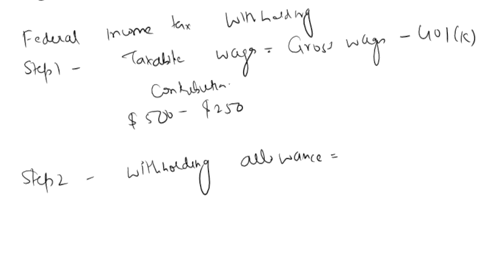 Federal income tax withholding
Step1 - Taxable wage = Gross wage - 401(K)
Contribution.
$500 - $250
Step2 - withholding allowance =